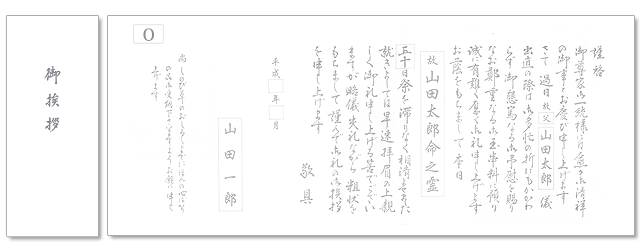 御挨拶
謹啓
御尊家御一統様には愈々御清祥
の御事とお慶び申し上げます
さて 過日 故 父 山田太郎 儀
出直の際は御多忙の折にもかかわ
らず御懇篤なる御弔慰を賜り
なお鄭重なる御玉串料に預り
誠に有難く厚く御礼申し上げます
お蔭をもちまして 本日
故 山田太郎命之霊
五十日祭を滞りなく相済ませました
就きましては早速拝眉の上親
しく御礼申し上げる筈でござい
ますが略儀失礼ながら粗状を
もちまして謹んで御礼の御挨拶
を申し上げます
敬具
平成 年 月
山田一郎